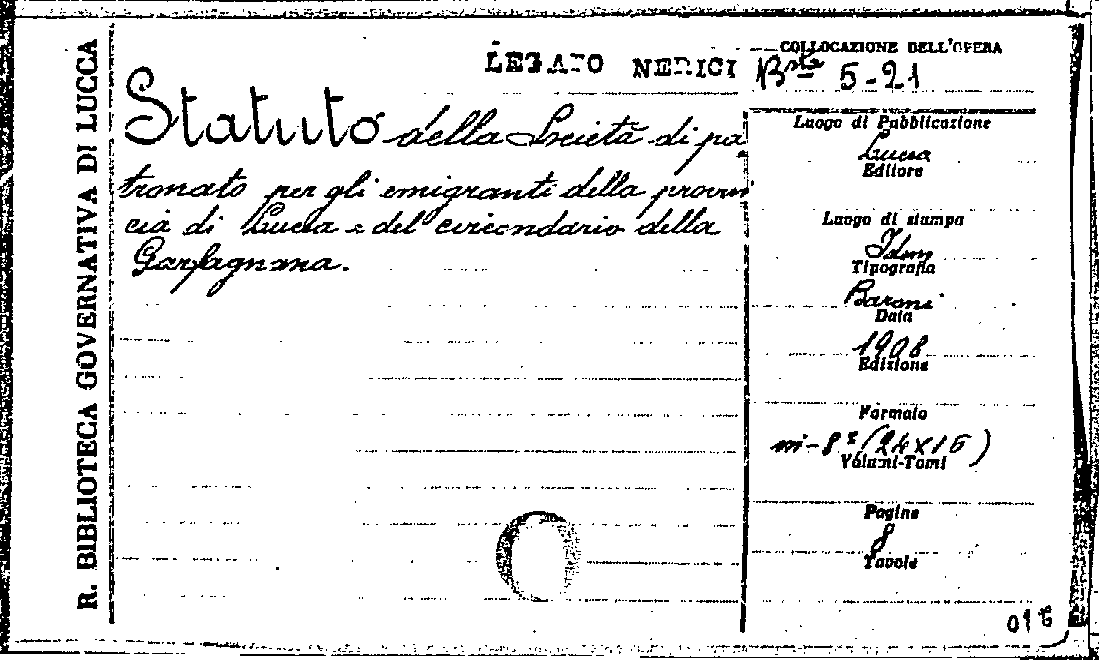 R. BIBLIOTECA GOVERNATIVA DI LUCCA
LEGATO NERICI
COLLOCAZIONE DELL'OPERA
Bsta 5-21
Statuto della Società di pa
tronato per gli emigranti della provin
cia di Lucca e del circondario della
Garfagnana.
Luogo di Pubblicazione
Lucca
Editore
Luogo di stampa
Idem
Tipografia
Baroni
Data
1908
Edizione
Formato
in-8º (24x16)
Volumi-Tomi
Pagine
8
Tavole